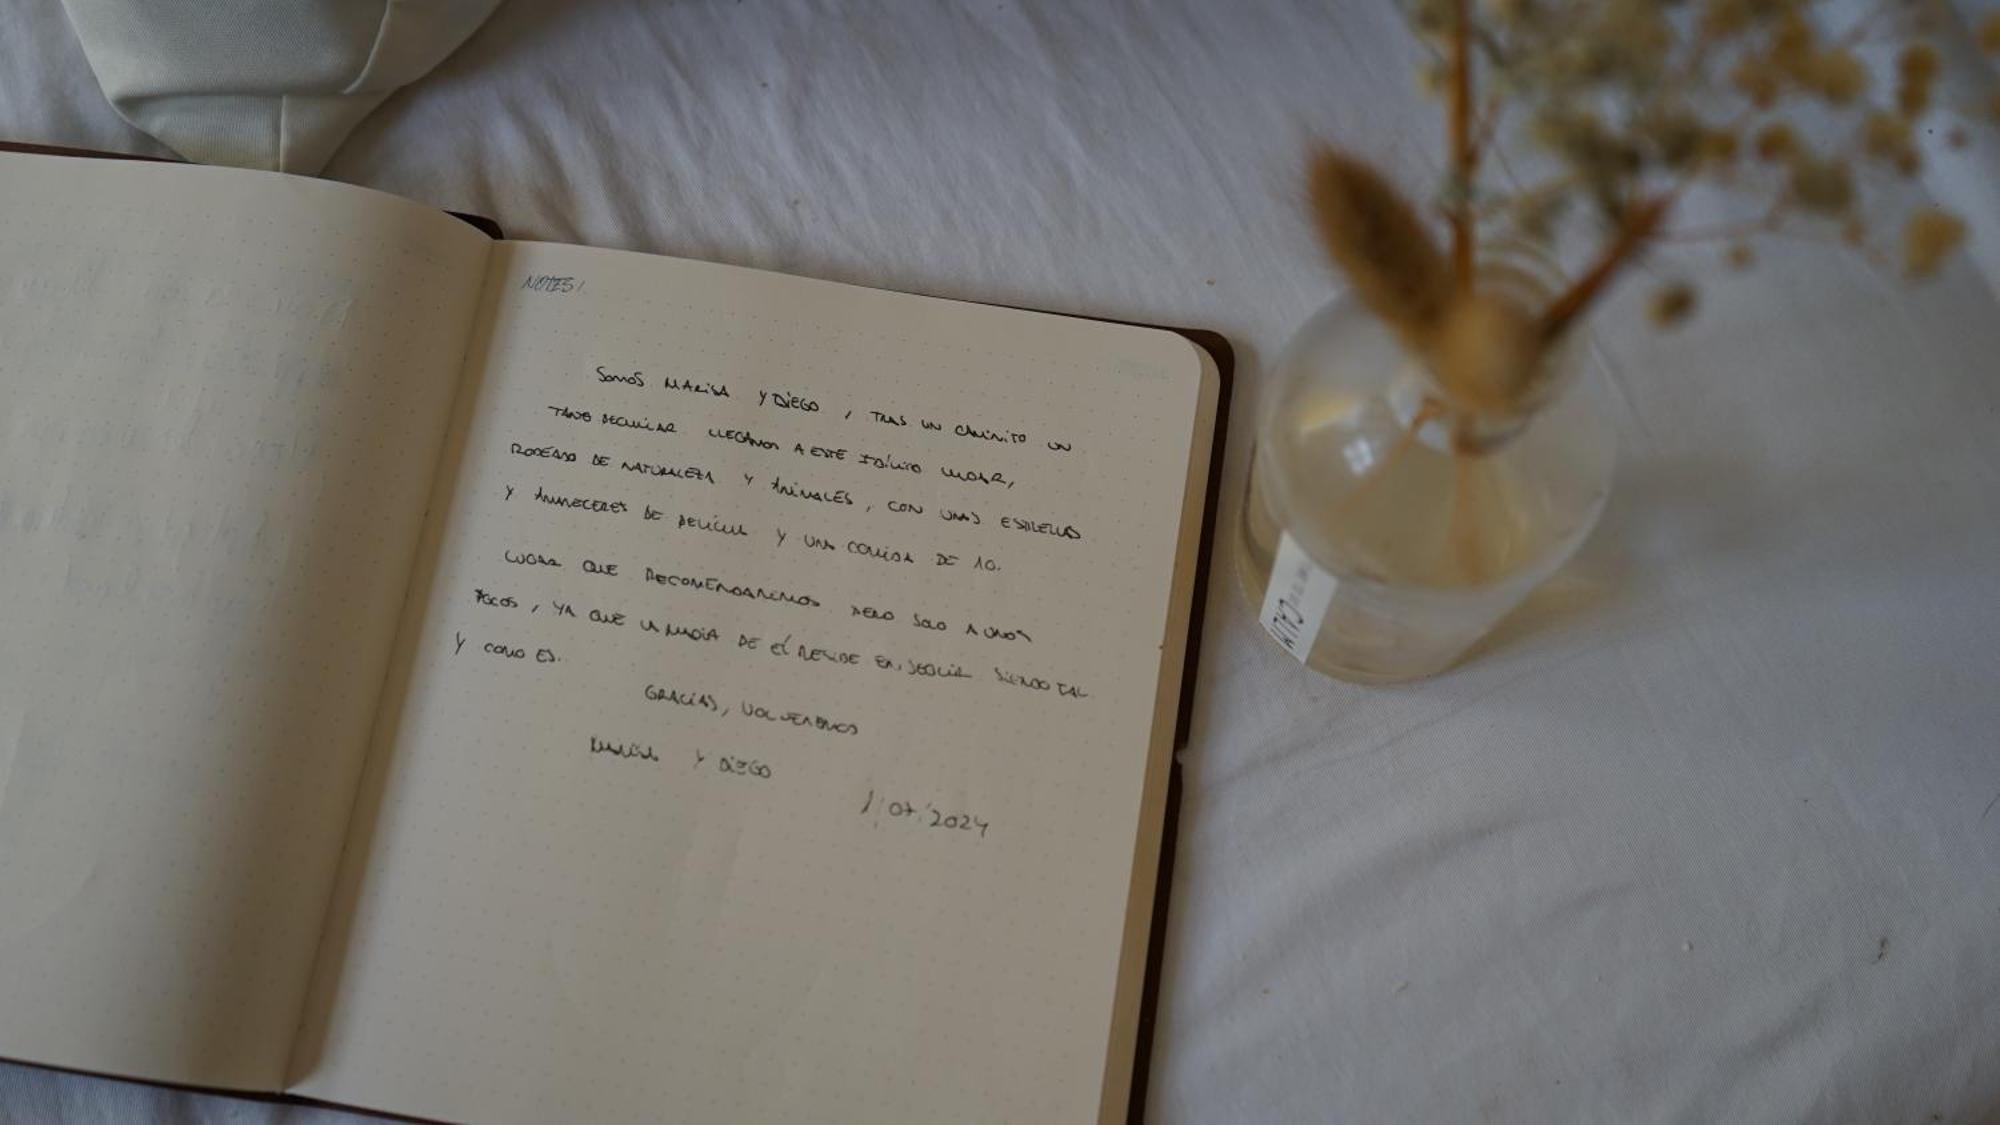 NOTES!
SOMOS MARISA Y DIEGO, TRAS UN CAMINITO UN
TANTO PECULIAR LLEGAMOS A ESTE IDÍLICO LUGAR,
RODEADO DE NATURALEZA Y ANIMALES, CON UNAS ESTRELLAS
Y AMANECERES DE PELÍCULA Y UNA COMIDA DE 10.
LUGAR QUE RECOMENDAREMOS PERO SOLO A UNOS
POCOS, YA QUE LA MAGIA DE ÉL RESIDE EN SEGUIR SIENDO TAL
Y COMO ES.
GRACIAS, VOLVEREMOS
MARISA Y DIEGO
1/07/2024